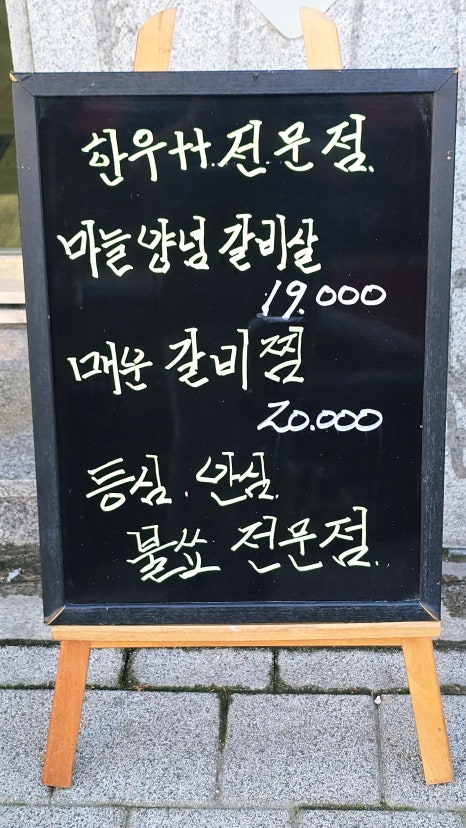 한우++ 전문점.
마늘양념갈비살
19.000
매운 갈비찜
20.000
등심. 안심.
불쑈 전문점.